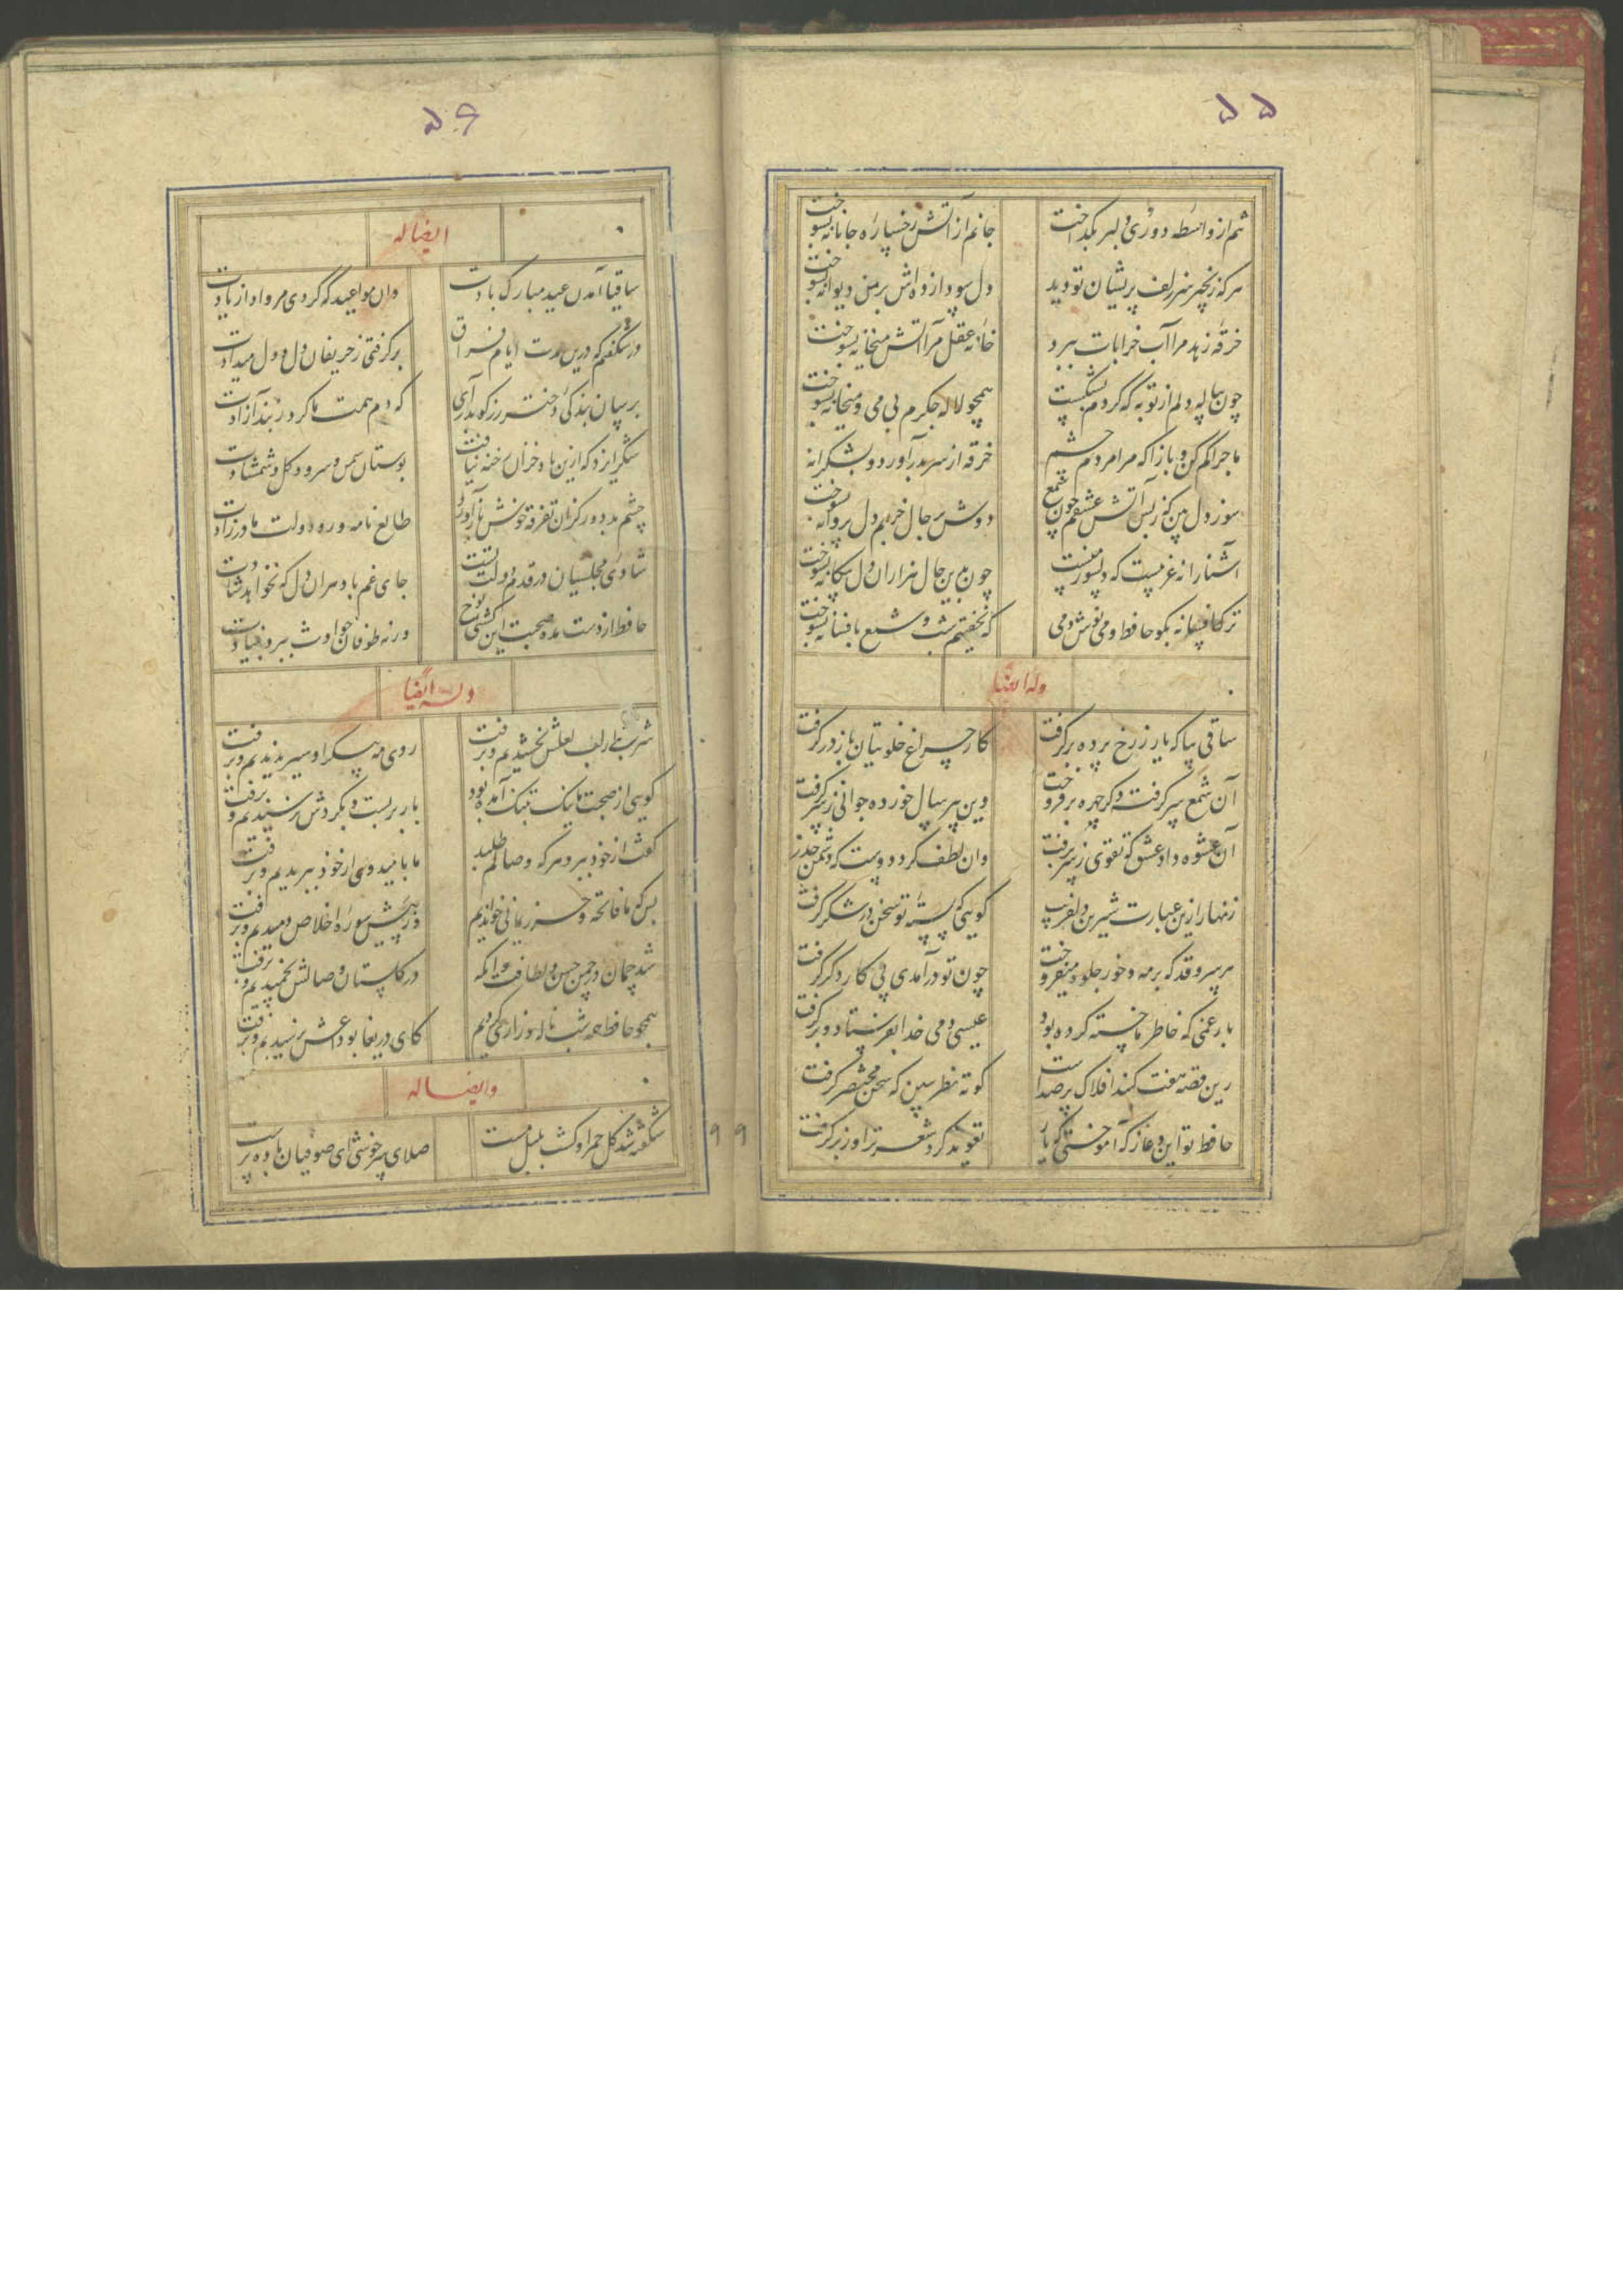 ۵۵
تنم از واسطه دوری دلبر بگداخت
جانم از آتش رخساره جانانه بسوخت
هر که زنجیر سر زلف پریشان تو دید
دل سودازده‌اش بر من دیوانه بسوخت
خرقه زهد مرا آب خرابات ببرد
خانه عقل مرا آتش میخانه بسوخت
چون پیاله دلم از توبه که کردم بشکست
همچو لاله جگرم بی می و میخانه بسوخت
ماجرا کم کن و بازآ که مرا مردم چشم
خرقه از سر بدر آورد و بشکرانه بسوخت
سوز دل بین که ز بس آتش عشقم چون شمع
دوش بر حال خرابم دل پروانه بسوخت
آشنا را نه غریبست که دلسوز منست
چون بدین حال هزاران دل بیگانه بسوخت
ترک افسانه بگو حافظ و می نوش دمی
که نخفتیم شب و شمع بافسانه بسوخت
وله ایضا
ساقی بیا که یار ز رخ پرده برگرفت
کار چراغ خلوتیان باز درگرفت
آن شمع سر گرفته دگر چهره برفروخت
وین پیر سال خورده جوانی ز سر گرفت
آن عشوه داد عشق که تقوی ز سر برفت
وان لطف کرد دوست که دشمن حذر گرفت
زنهار ازین عبارت شیرین دلفریب
گویی که پسته تو سخن در شکر گرفت
هر سروقد که بر مه و خور جلوه میفروخت
چون تو درآمدی پی کار دگر گرفت
بار غمی که خاطر ما خسته کرده بود
عیسی دمی خدا بفرستاد و برگرفت
زین قصه هفت گنبد افلاک پر صداست
کوته نظر ببین که سخن مختصر گرفت
حافظ تو این دعا ز که آموختی که یار
تعویذ کرد شعر ترا و بزر گرفت
۵۶
ایضا له
ساقیا آمدن عید مبارک بادت
وان مواعید که کردی مرواد از یادت
در شگفتم که درین مدت ایام فراق
برگرفتی ز حریفان دل و دل میدادت
برسان بندگی دختر رز گو بدر آی
که دم همت ما کرد ز بند آزادت
شکر ایزد که ازین باد خزان رخنه نیافت
بوستان سمن و سرو و گل و شمشادت
چشم بد دور کزان تفرقه خوش بازآورد
طالع نامور و دولت مادرزادت
شادی مجلسیان در قدم دولت تست
جای غم باد هر آن دل که نخواهد شادت
حافظ از دست مده صحبت این کشتی نوح
ورنه طوفان حوادث ببرد بنیادت
وله ایضا
شربتی از لب لعلش نچشیدیم و برفت
روی مه پیکر او سیر ندیدیم و برفت
گویی از صحبت ما نیک بتنگ آمده بود
بار بربست و بگردش نرسیدیم و برفت
گفت از خود ببرد هر که وصالم طلبد
ما بامید وی از خود ببریدیم و برفت
بس که ما فاتحه و حرز یمانی خواندیم
در پیش سوره اخلاص دمیدیم و برفت
شد چمان در چمن حسن و لطافت
در گلستان وصالش نچمیدیم و برفت
همچو حافظ همه شب ناله و زاری کردیم
کای دریغا بوداعش نرسیدیم و برفت
وایضا له
شکفته شد گل حمرا و گشت بلبل مست
صلای سرخوشی ای صوفیان باده پرست
۶۶